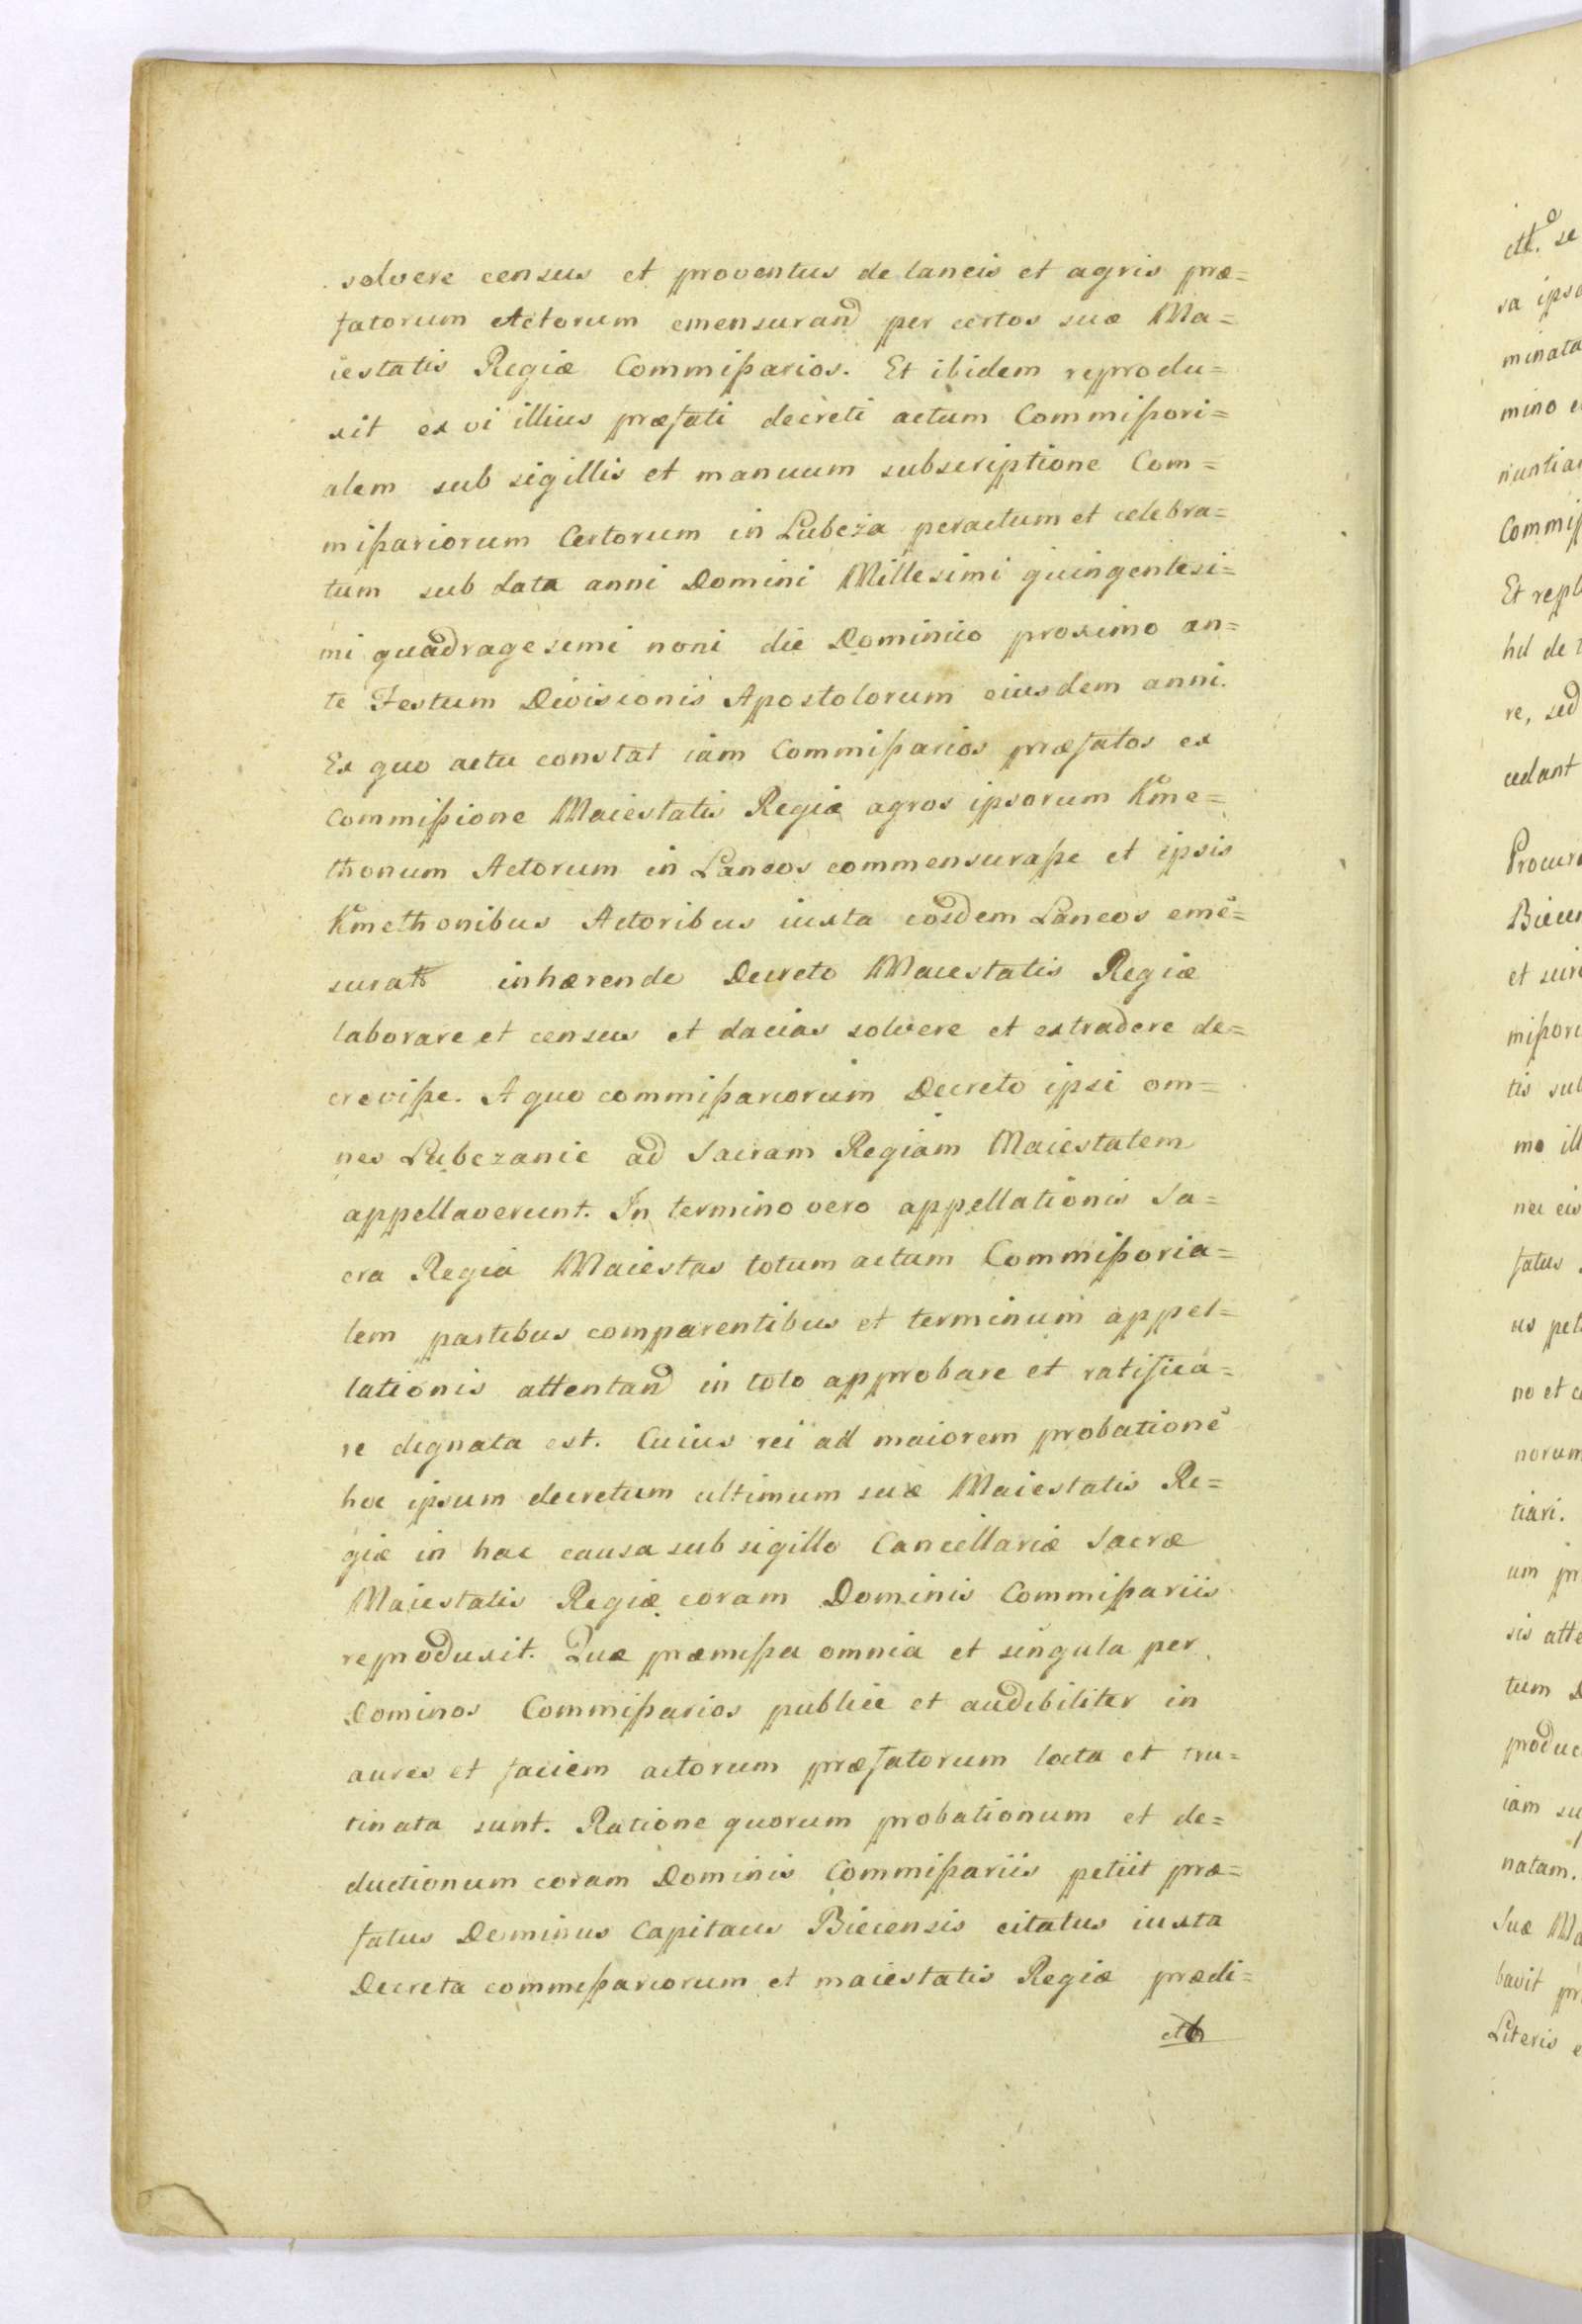 solvere census et proventus de laneis et agris præ=
fatorum Actorum emensurand per certos suæ Ma=
iestatis Regiæ Commißarios. Et ibidem reprodu=
xit ex vi illius præfati decreti actum Commißori=
alem sub sigillis et manuum subscriptione Com=
mißariorum Certorum in Lubcza peractum et celebra=
tum sub data anni Domini Millesimi quingentesi=
mi quadragesimi noni die Dominico proximo an=
te Festum Divisionis Apostolorum eiusdem anni.
Ex quo actu constat iam Commißarios præfatos ex
commißione Maiestatis Regiæ agros ipsorum Kme=
thonum Actorum in Laneos commensuraße et ipsis
Kmethonibus Actoribus iuxta eosdem Laneos emē=
surat inhærende Decreto Maiestatis Regiæ
laborare et census et dacias solvere et extradere de=
creviße. A quo commißariorum Decreto ipsi om=
nes Lubczanie ad Sacram Regiam Maiestatem
appellaverunt. In termino vero appellationis Sa=
cra Regia Maiestas totum actum Commißoria=
lem partibus comparentibus et terminum appel=
lationis attentand in toto approbare et ratifica=
re dignata est. Cuius rei ad maiorem probationē
hoc ipsum decretum ultimum suæ Maiestatis Re=
giæ in hac causa sub sigillo Cancellariæ Sacræ
Maiestatis Regiæ coram Dominis Commißariis
reproduxit. Quæ præmißa omnia et singula per
Dominos Commißarios publice et audibiliter in
aures et faciem actorum præfatorum lecta et tru=
tinata sunt. Ratione quorum probationum et de=
ductionum coram Dominis Commißariis petiit præ=
fatus Dominus Capitaus Biecensis citatus iuxta
Decreta commißariorum et maiestatis Regiæ prædi=
ett. se
sa ipso
minata
mino e
nuntia
Commiß
Et repl
hil de
re, sed
cedant
Procur
Biecen
et
mißor
tis sub
mo ill
nec eis
fatus
us pet
no et c
norum
tiari.
um pr
sis atte
tum D
produc
iam su
natam.
Suæ Ma
bavit pr
Literis e